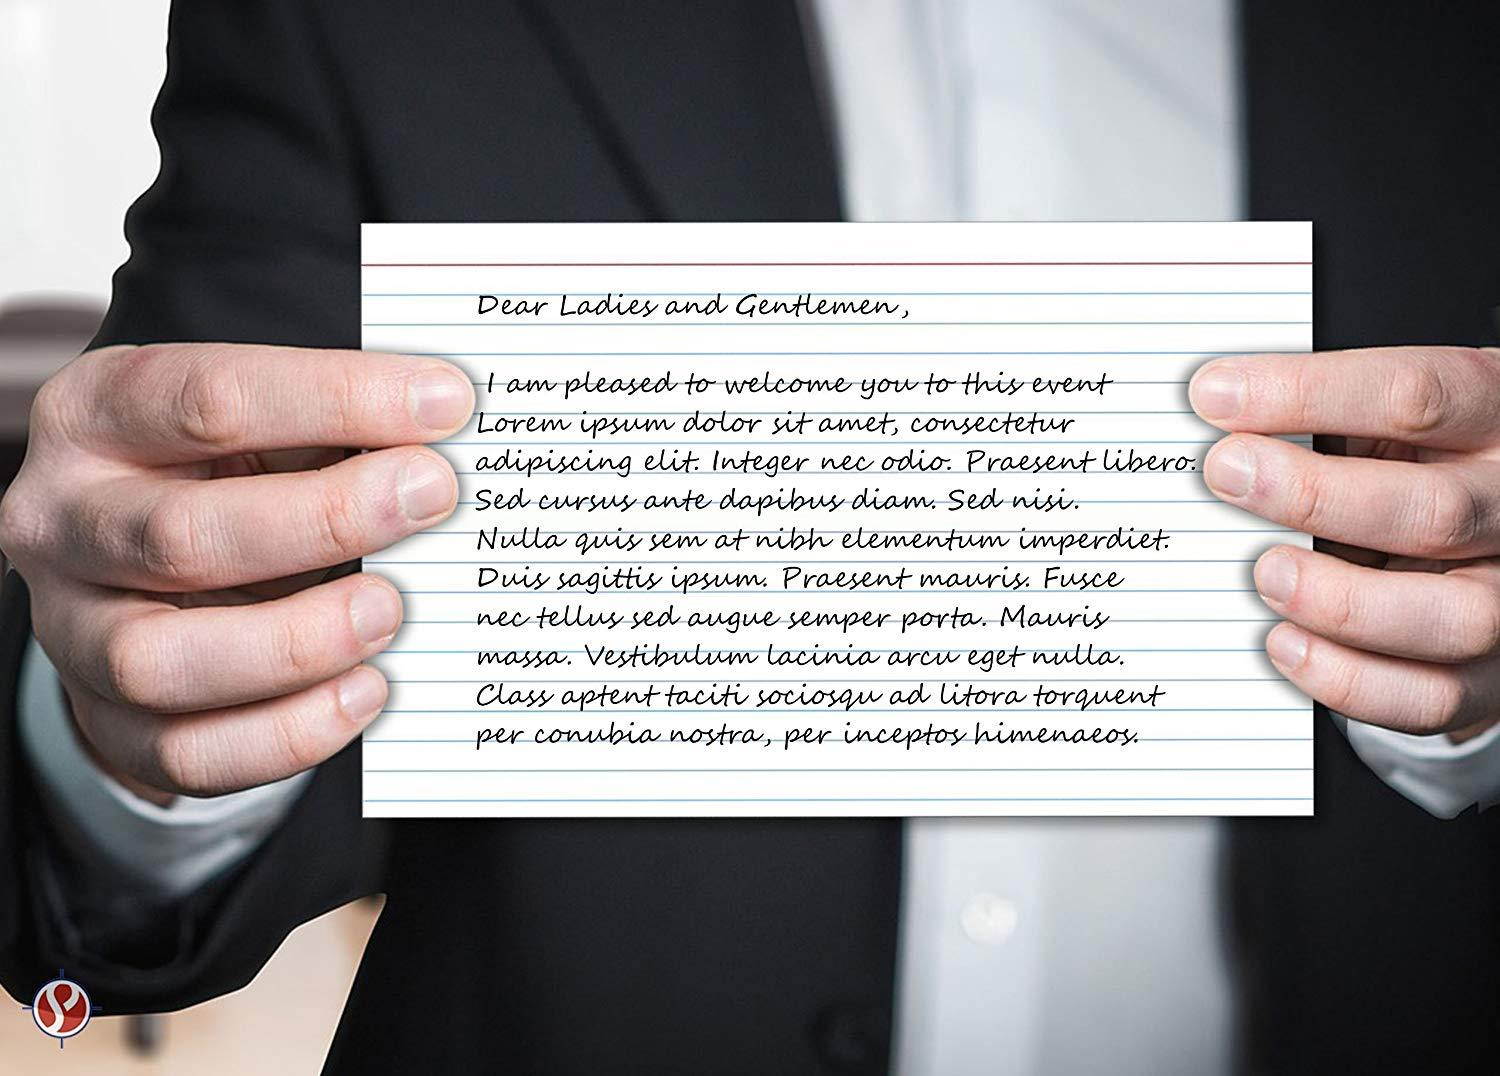 Dear Ladies and Gentlemen,
I am pleased to welcome you to this event
Lorem ipsum dolor sit amet, consectetur
adipiscing elit. Integer nec odio. Praesent libero.
Sed cursus ante dapibus diam. Sed nisi.
Nulla quis sem at nibh elementum imperdiet.
Duis sagittis ipsum. Praesent mauris. Fusce
nec tellus sed augue semper porta. Mauris
massa. Vestibulum lacinia arcu eget nulla.
Class aptent taciti sociosqu ad litora torquent
per conubia nostra, per inceptos himenaeos.